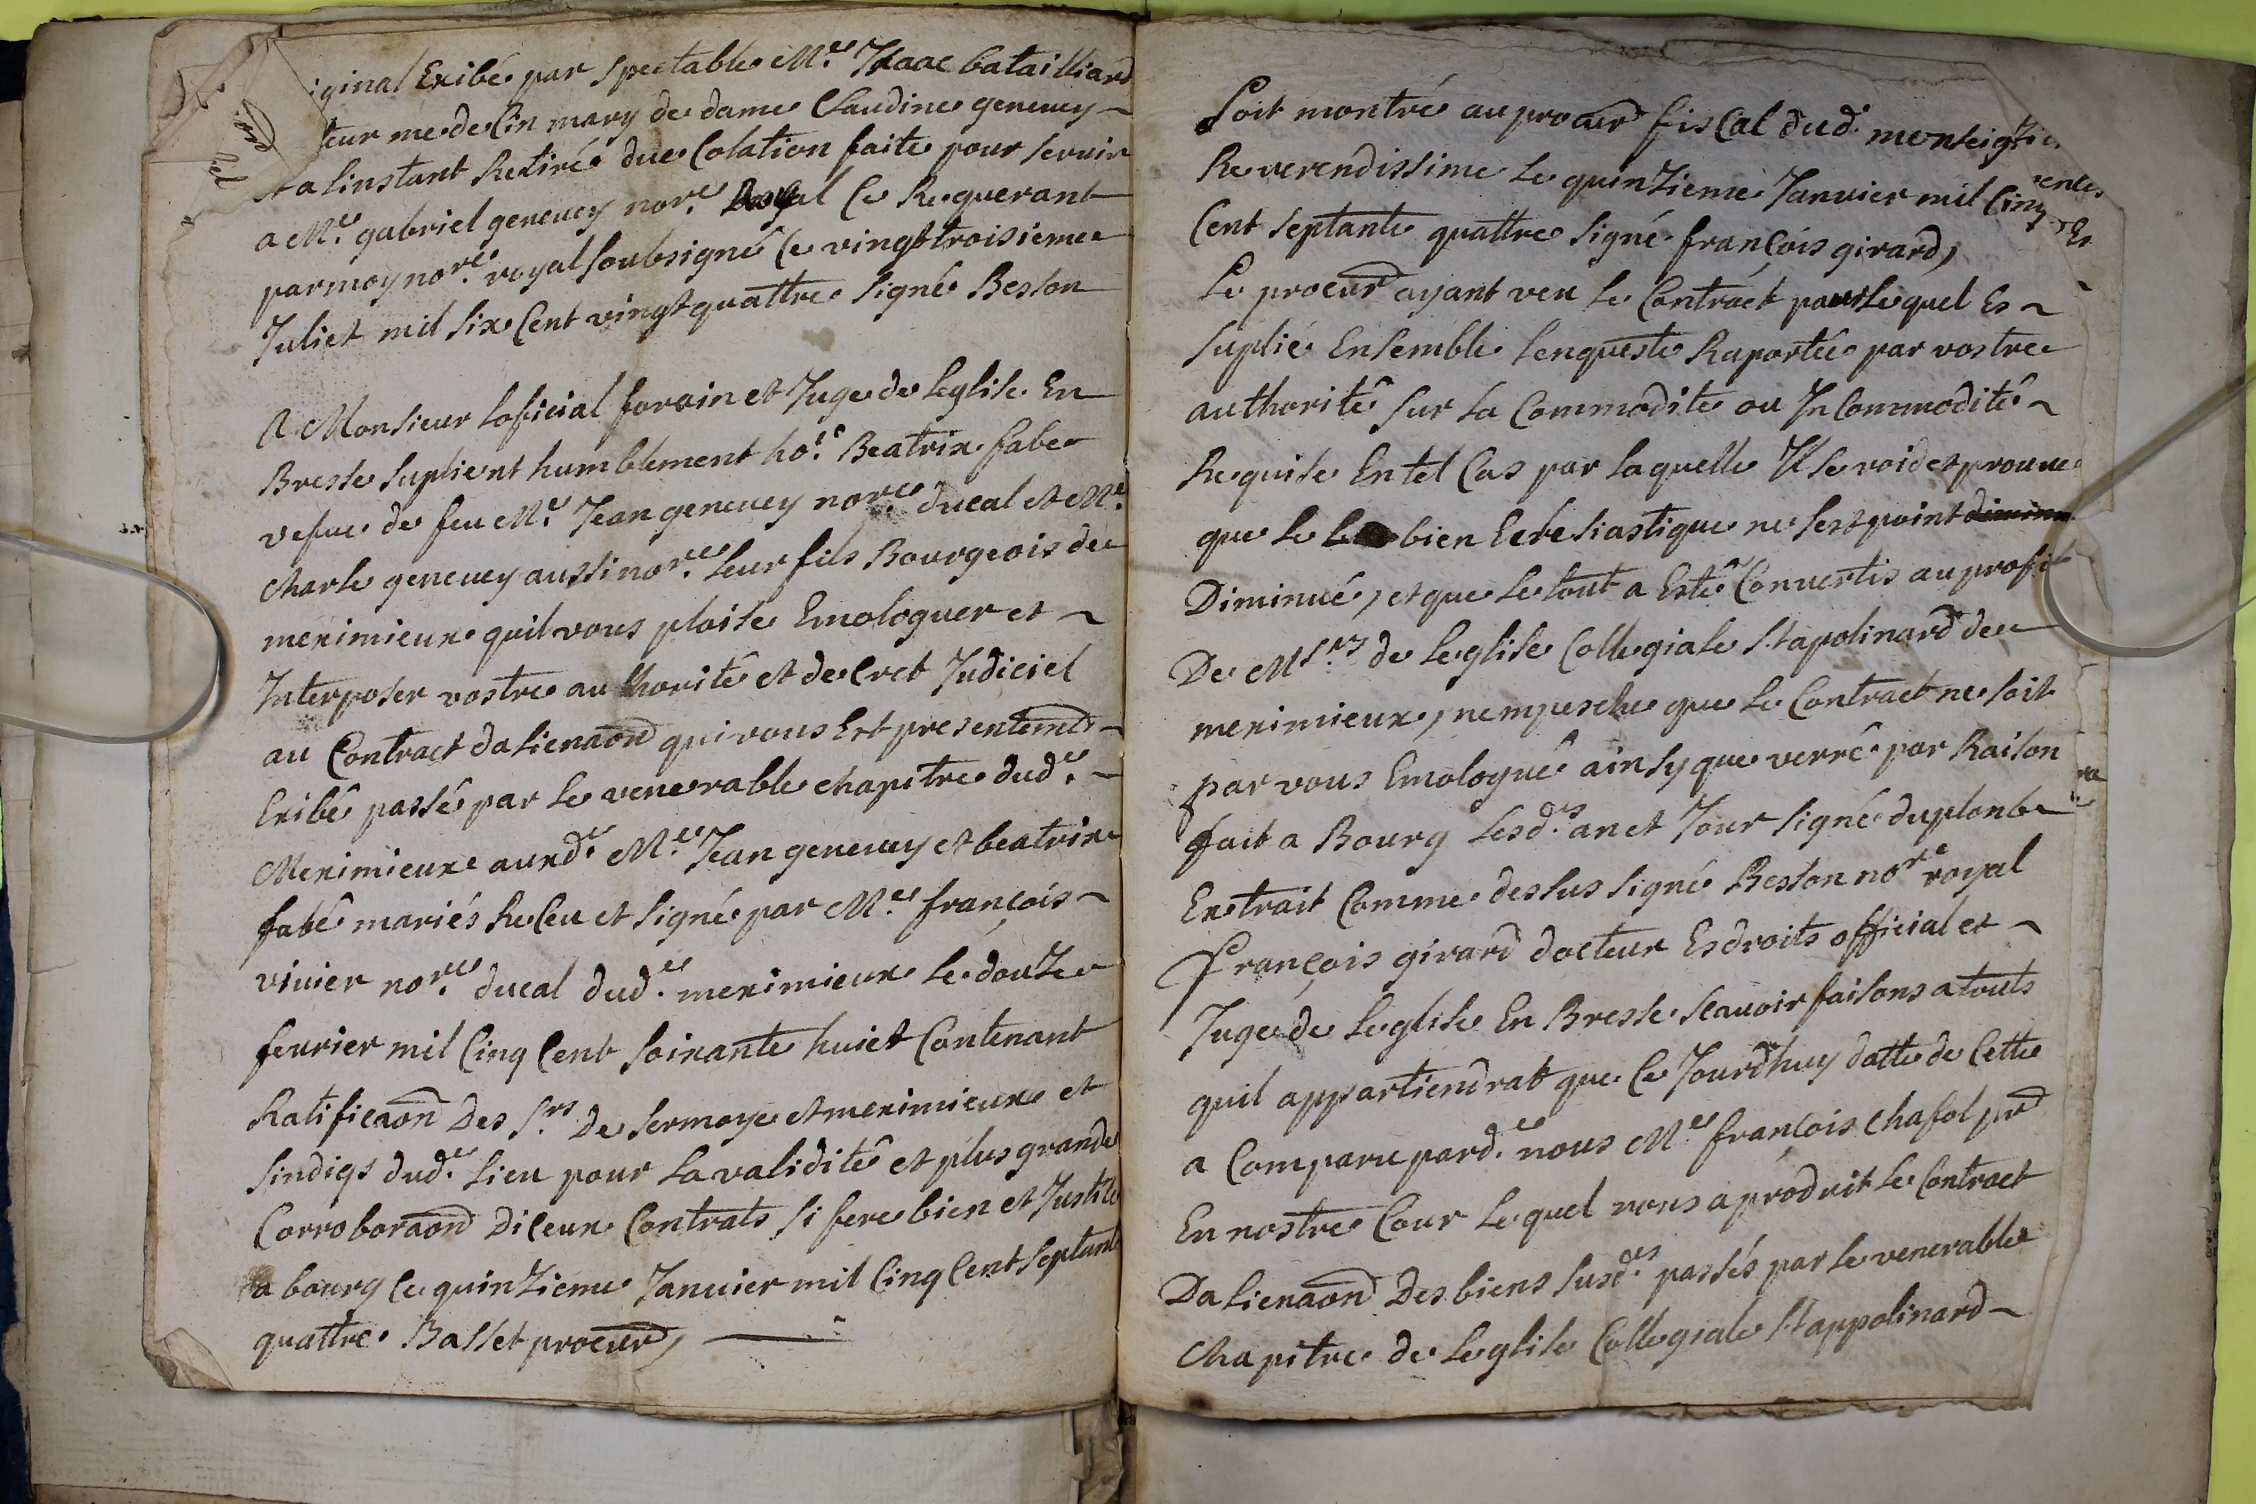 iginal Exibé par spectable Me. Isaac batailliard
teur medecin mary de dame Claudine geneuey
a linstant Retiré due Colation faite pour servir
a Me. gabriel geneuey nore. Royal Ce Requerant
par moy nore. royal soubsigné Ce vingttroisieme
Juliet mil six Cent vingt quattre signé Beston
A Monsieur Loficial forain et Juge de Leglise En
Bresse suplient humblement hote. Beatrix fabe
vefue de feu Me. Jean geneuey nore. ducal et Me.
Charle geneuey aussi nore. Leur fils Bourgeois de
meximieux quil vous plaise Emologuer et
Interposer vostre authorité et decret Judiciel
au Contract dalienaon qui vous Est presentemt
Exibé passé par le venerable chapitre dude.
Meximieux auxde. Me. Jean geneuey et beatrix
fabé mariés Receu et signé par Me. françois
viuier nore. ducal dude. meximieux Le douze
feurier mil Cinq Cent soixante huict Contenant
Ratificaon Des Srs. De sermoye et meximieux et
sindiqs dude. Lieu pour La validité et plus grande
Corroboraon Diceux Contrats si fere bien et Justice
a bourg Ce quinzieme Januier mil Cinq Cent septante
quattre. Basset procur
Soit montré au procur fiscal dud. monseig
Reverendissime Le quinzieme Januier mil Cinq
Cent septante quattre signé françois girard,
Le procur ayant veu Le Contract par Lequel Es
suplié Ensemble Lenqueste Raportée par vostre
authorité sur La Commodité ou InCommodité
Requise En tel Cas par Laquelle Il se void et prouue
que Le bien Eccle siastique ne sest point diminu
Diminué, et que Le tout a Esté Convertis au profit
De Msrs. de Leglise Collegiale St apolinard de
meximieux, nempesche que Le Contract ne soit
par vous Emologué ainsy que verré par Raison
fait a Bourg Lesdes. an et Jour signé duplonb
Extrait Comme dessus signé Beston nore royal
François girard docteur Es droits official et
Juge de Leglise En Bresse sçauoir faisons a touts
quil appartiendrat que Ce Jourdhuy datte de Cette
a Comparu parde. nous Me. françois Chafol pr
En nostre Cour Lequel nous a produit Le Contract
Dalienaon Des biens susdes. passés par Le venerable
Chapitre de Leglise Collegiale St appolinard